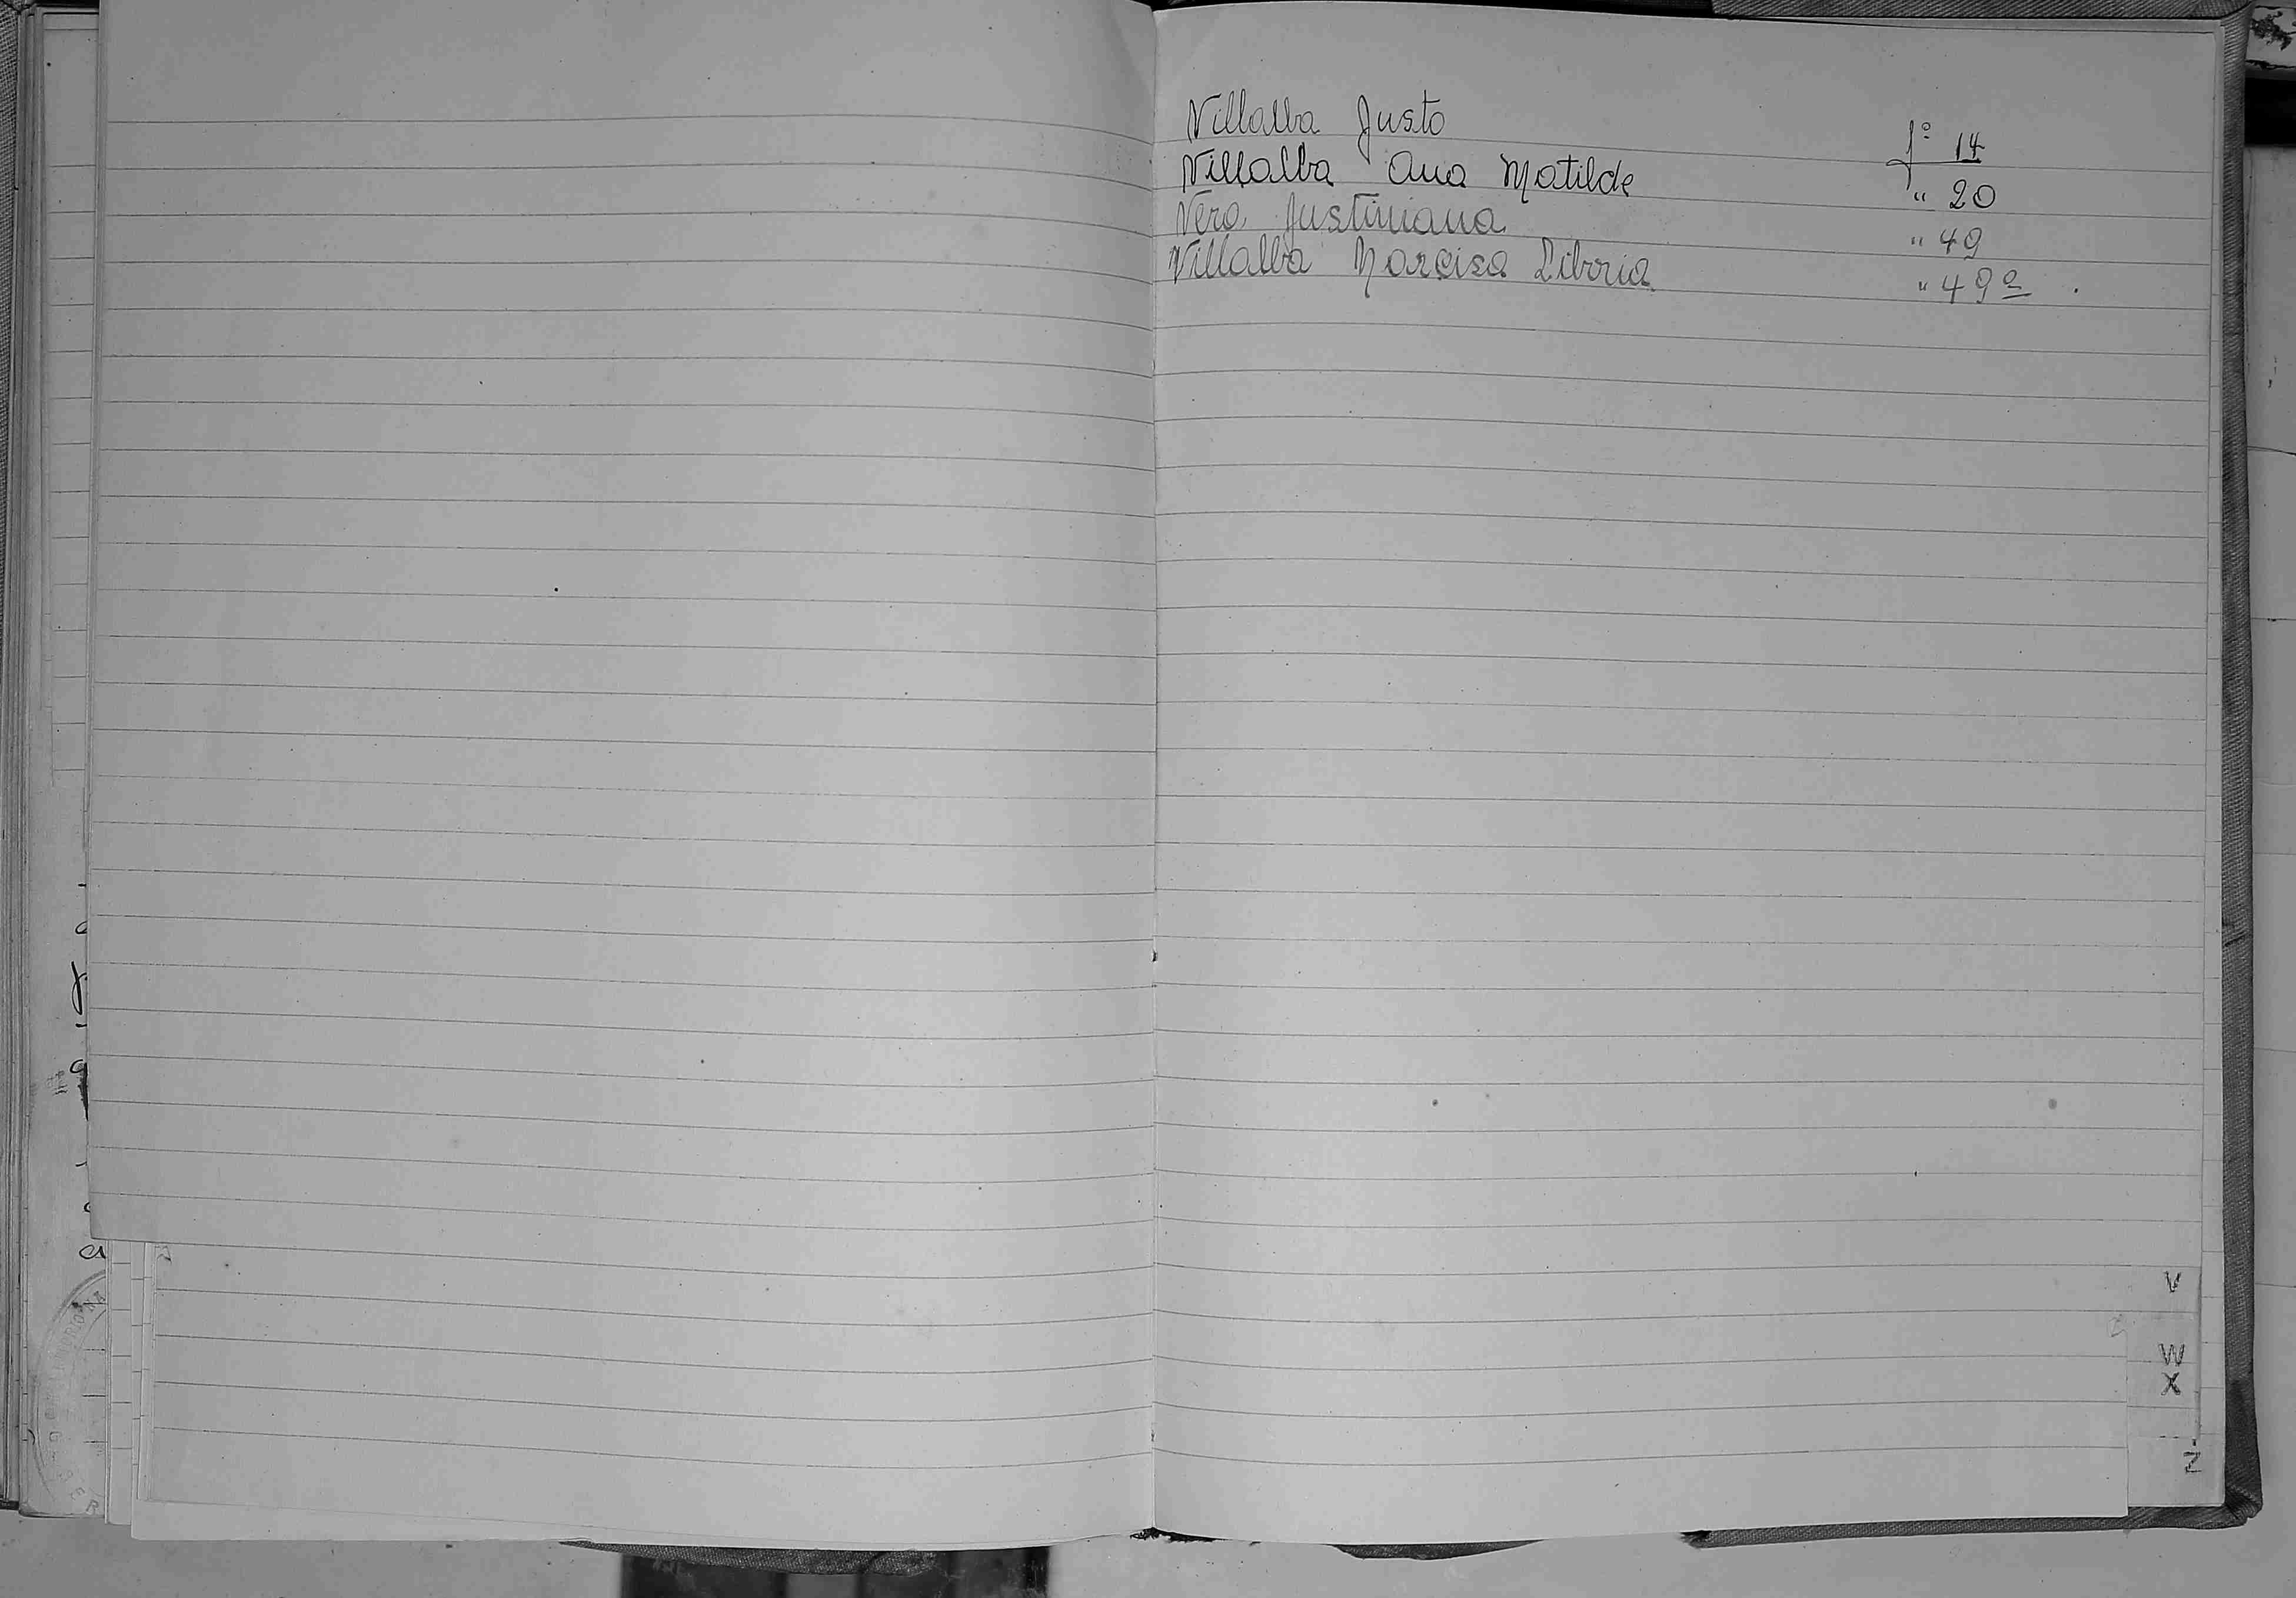 Villalba Justo fº 14
Villalba Ana Matilde " 20
Vera Justiniana " 49
Villalba Narcisa Liboria " 49 º
V
W
X
Z